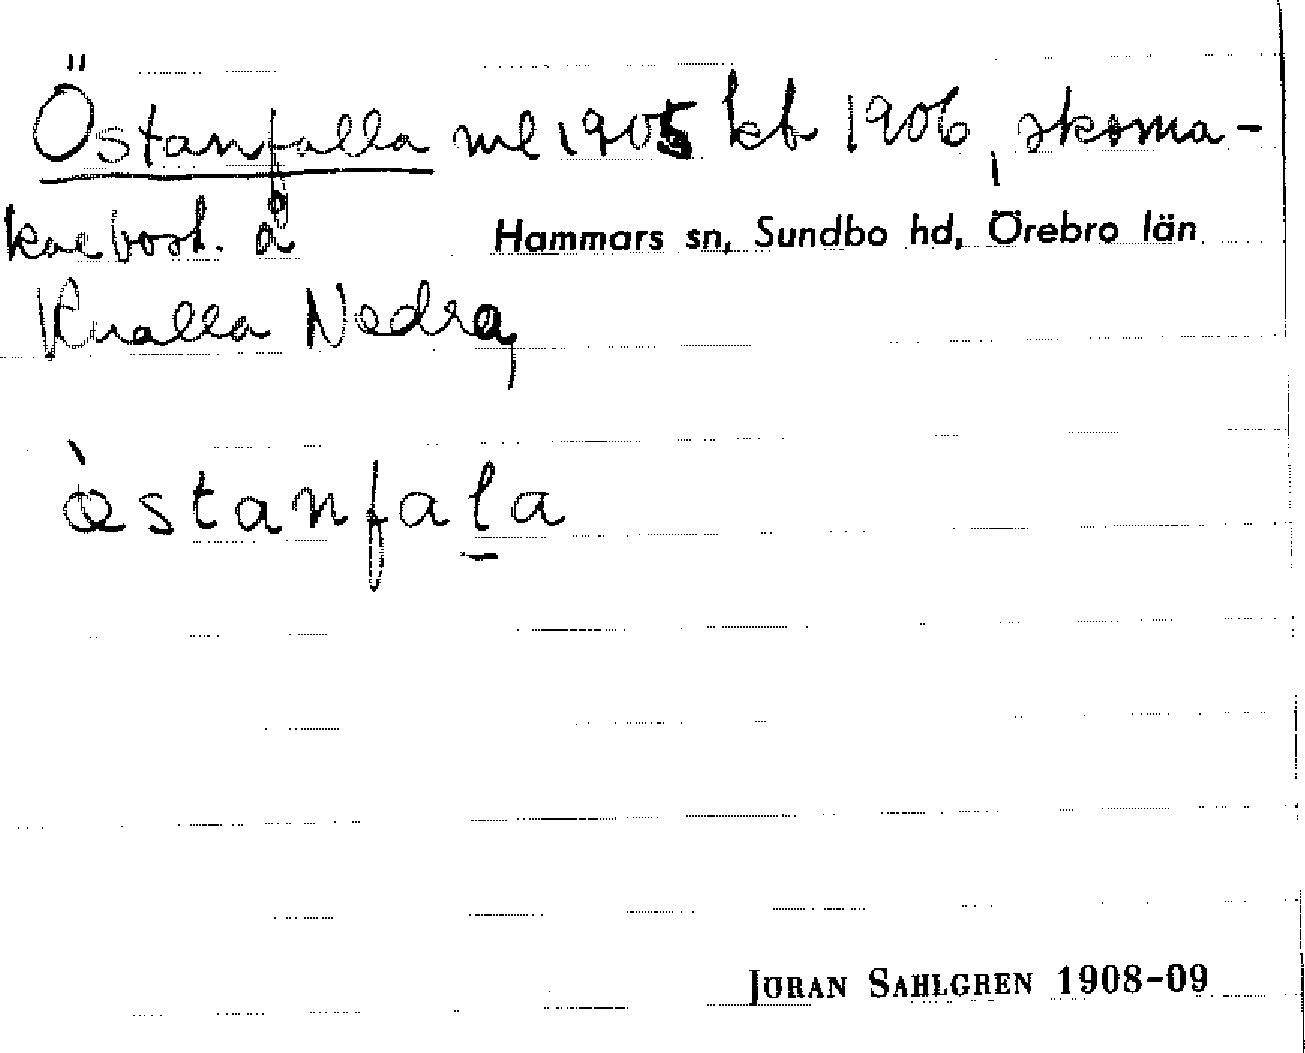 Östanfalla ml 1905 kb 1906, skoma-
karbost. å
Hammars sn, Sundbo hd, Örebro län
Knalla Nedra,
östanfala
JÖRAN SAHLGREN 1908-09